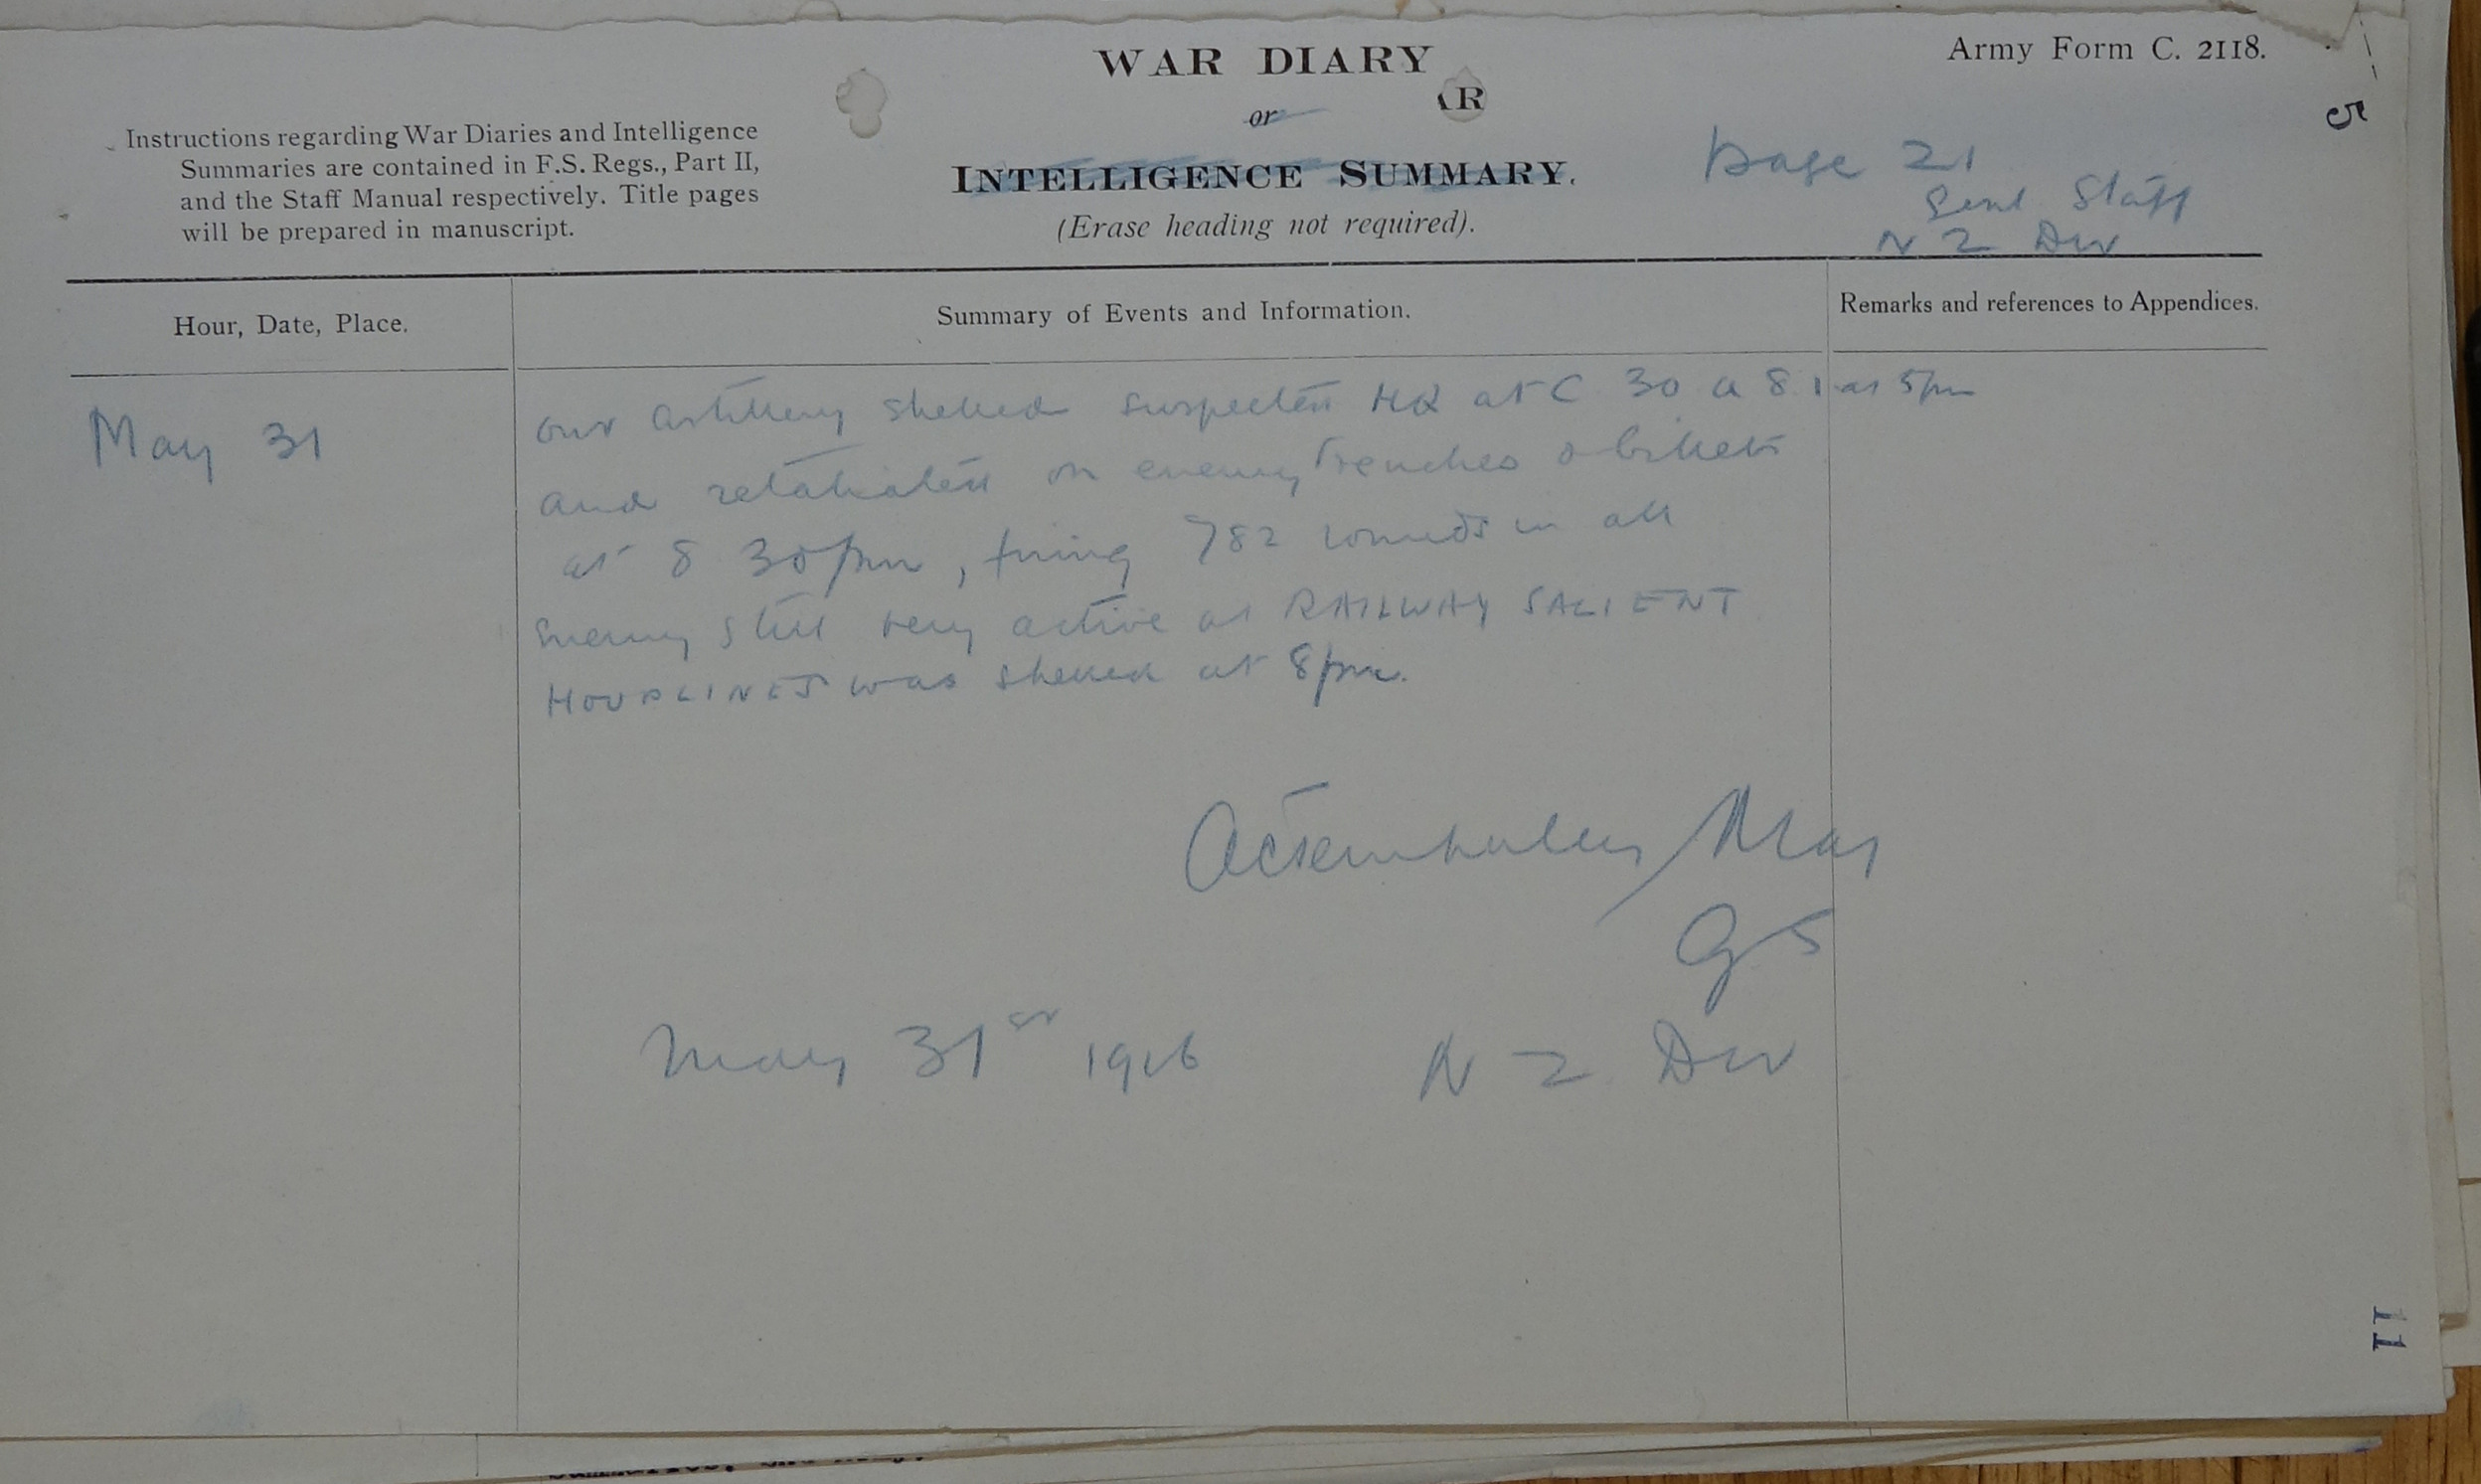 Army Form C. 2118.
WAR DIARY
or
INTELLIGENCE SUMMARY.
(Erase heading not required).
Instructions regarding War Diaries and Intelligence
Summaries are contained in F.S. Regs., Part II,
and the Staff Manual respectively. Title pages
will be prepared in manuscript.
AR
5
Page 21
Genl Staff
N Z Div
Hour, Date, Place.
Summary of Events and Information.
Remarks and references to Appendices.
May 31
our artillery shelled suspected HQ at C 30 a 8.1 at 5pm
and retaliated on enemy trenches & billets
at 8 30pm, firing 782 rounds in all
Enemy still very active at RAILWAY SALIENT
HOUPLINES was shelled at 8pm.
Maj
GS
May 31st 1916
N Z Div
11